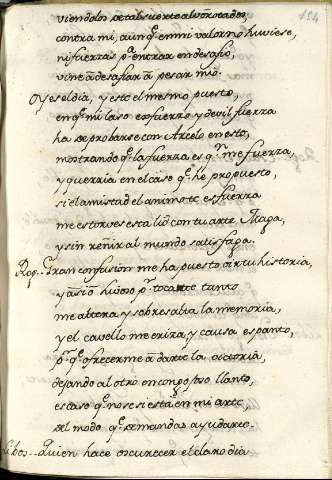 viendolos de tal suerte alvorotados
contra mi, aunq.e en mi valor no huviese,
ni fuerzas p.a entrar en desafio,
vine a desafiar a pesar mio.
Oy es el dia, y este el mesmo puesto,
en q.e mi laso esfuerzo y devil fuerza
ha de probarse con Arcelo en esto,
mostrando q.e la fuerza es q.n me fuerza,
y querria en el caso q.e he propuesto,
si el amistad el animo te esfuerza
me estorves esta lid con tu arte Maga,
y sin reñir al mundo satisfaga.
Rog. Gran confusion me ha puesto oir tu historia,
y asi
me altera y sobresalta la memoria,
y el cavello me eriza, y causa espanto,
p.r q.e ofrecerme a darte la victoria,
dejando al otro en congojoso llanto,
es caso q.e no se si está en mi arte,
del modo q.e demandas ayudarte.
Libos.. Quien hace oscurecer el claro dia
154